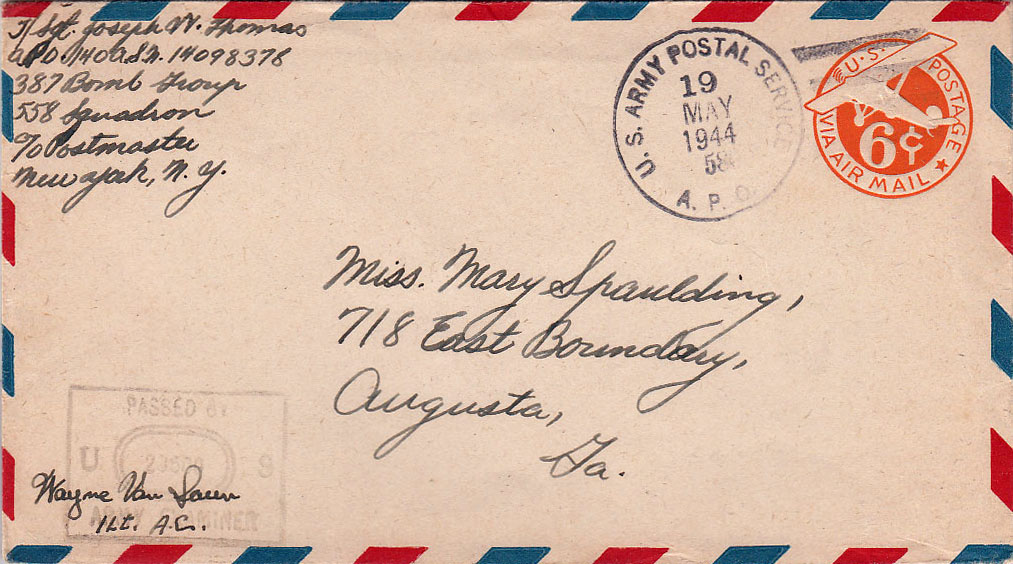 T/Sgt. Joseph W. Thomas
A.P.O. 140 A.S.N. 14098378
387 Bomb Group
558 Squadron
℅ Postmaster
New York, N.Y.
U.S. ARMY POSTAL SERVICE
19
MAY
1944
58
A.P.O.
U.S. POSTAGE
VIA AIR MAIL
6¢
Miss. Mary Spaulding,
718 East Boundary,
Augusta,
Ga.
PASSED BY
U S
ARMY EXAMINER
Wayne Van
1Lt. A.C.